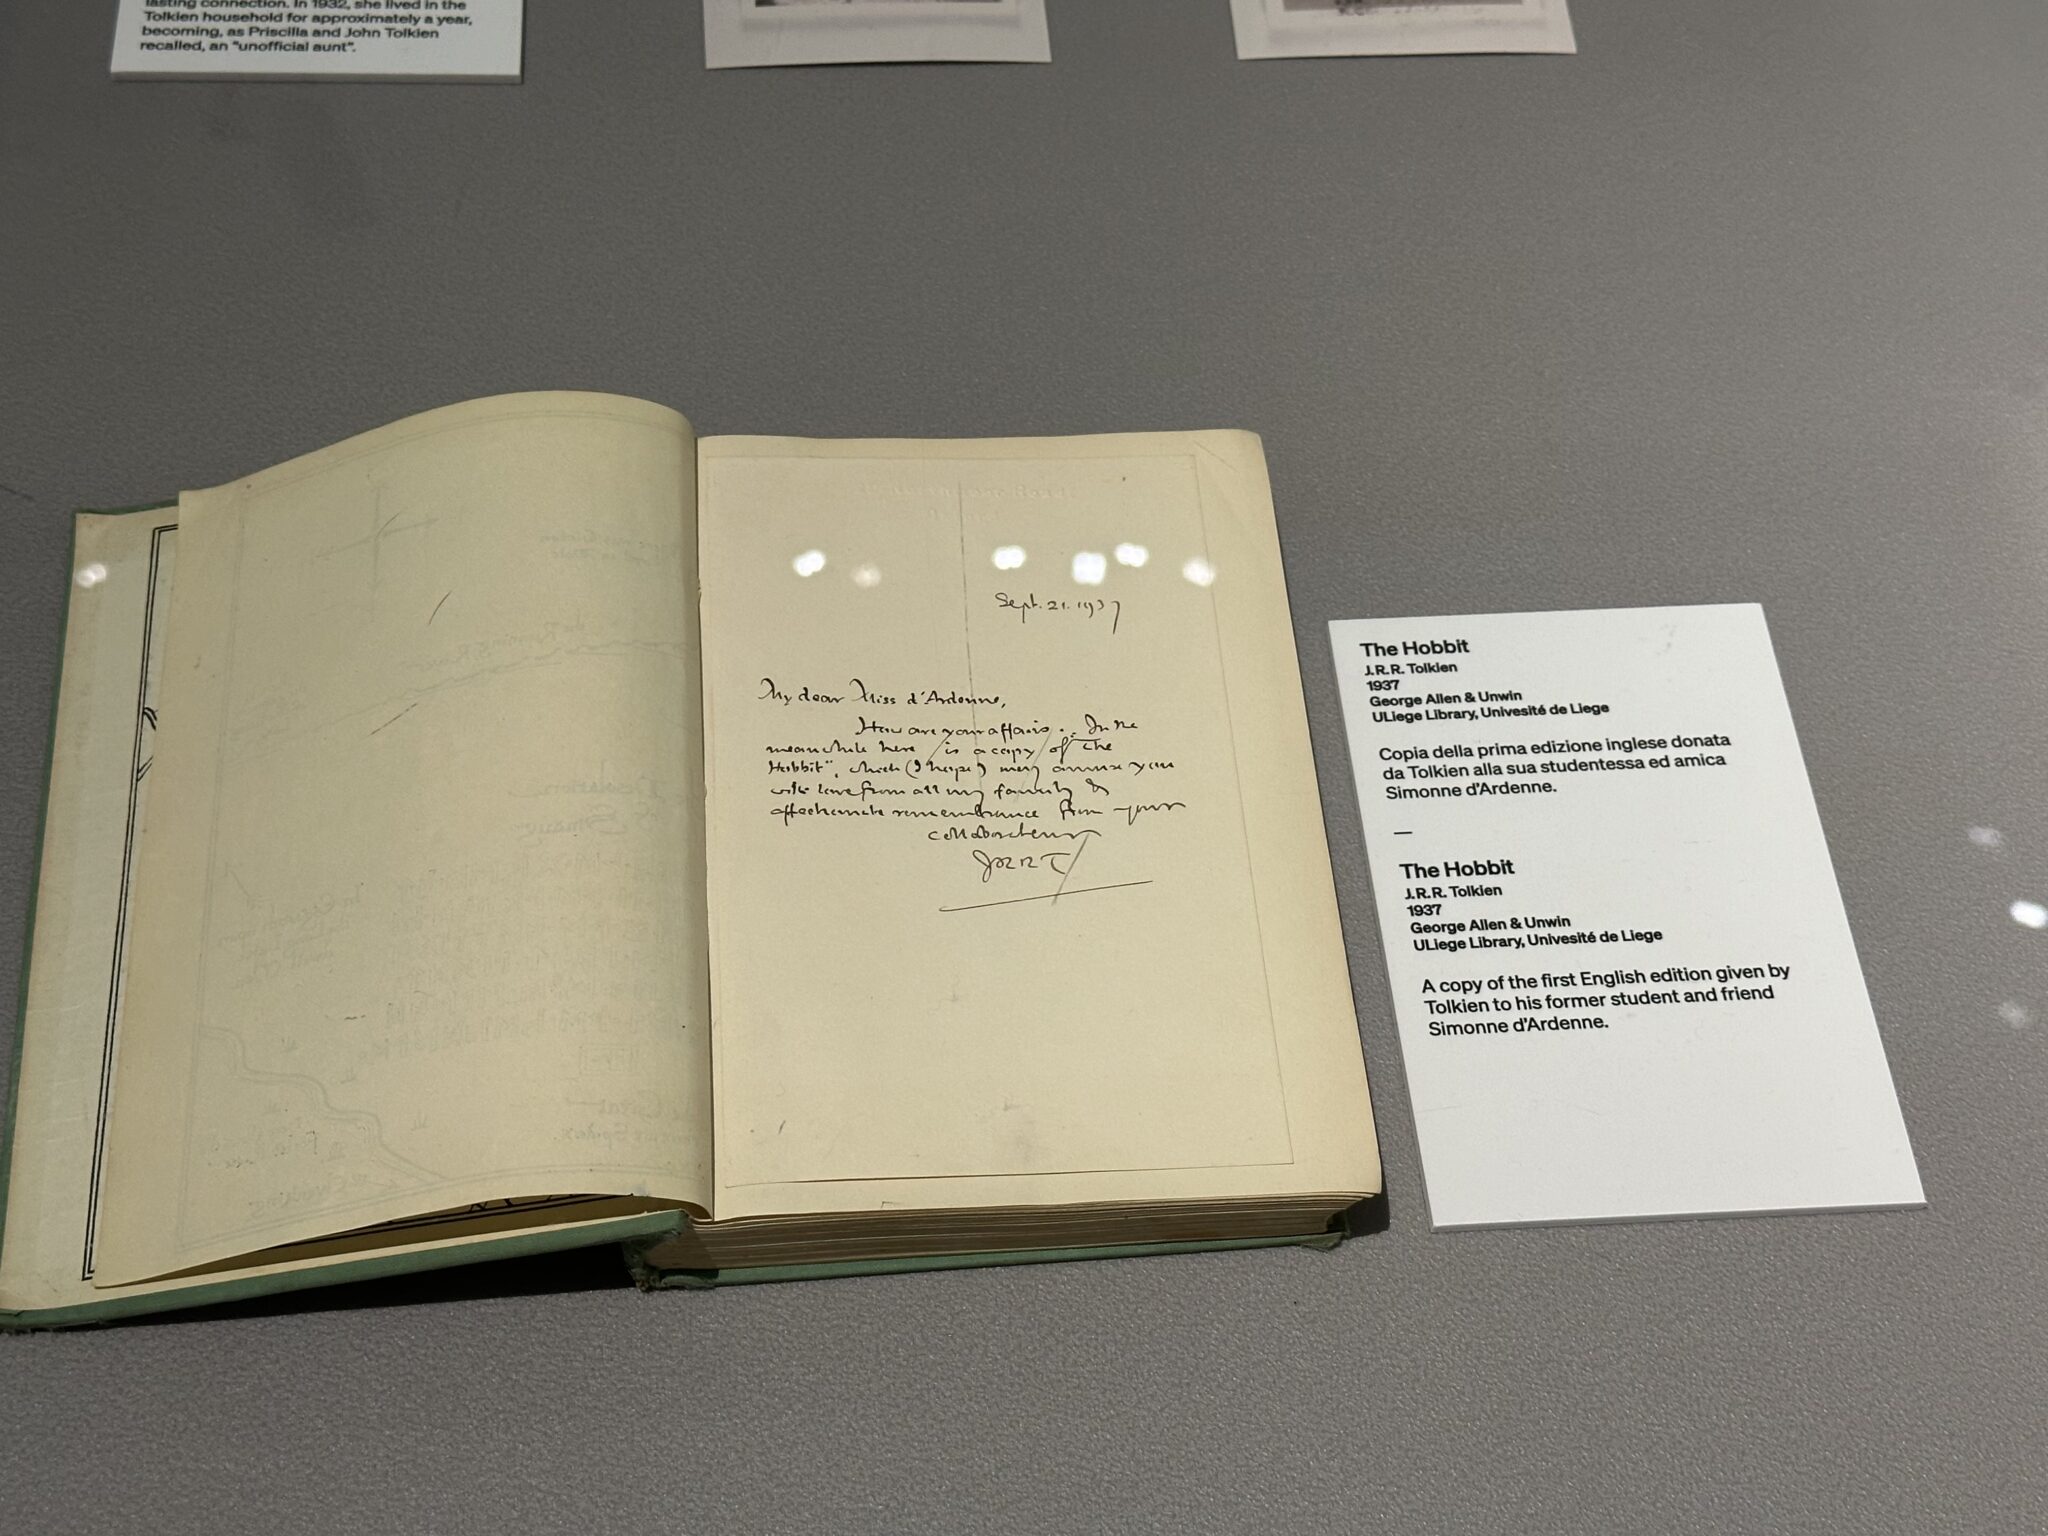 lasting connection. In 1932, she lived in the
Tolkien household for approximately a year,
becoming, as Priscilla and John Tolkien
recalled, an "unofficial aunt".
Sept. 21. 1937
My dear Miss d'Ardenne,
How are your affairs. In the
meanwhile here is a copy of "The
Hobbit", which (I hope) may amuse you
with love from all my family &
affectionate remembrance from your
collaborateur
JRRT
The Hobbit
J.R.R. Tolkien
1937
George Allen & Unwin
ULiege Library, Univesité de Liege
Copia della prima edizione inglese donata
da Tolkien alla sua studentessa ed amica
Simonne d'Ardenne.
—
The Hobbit
J.R.R. Tolkien
1937
George Allen & Unwin
ULiege Library, Univesité de Liege
A copy of the first English edition given by
Tolkien to his former student and friend
Simonne d'Ardenne.